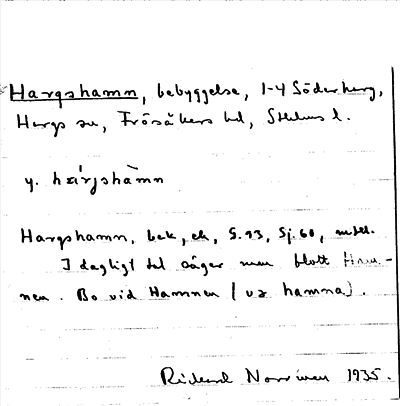 Hargshamn, bebyggelse, 1-4 Söderberg,
Hargs sn, Frösåkers hd, Sthlms l.
y. hárjshàmn
Hargshamn, bek, ek, G.93, Sj.60, m.fl.
I dagligt tal säger man blott Ham-
nen. Bo vid Hamnen (va hamna).
Rickard Norrman 1935.